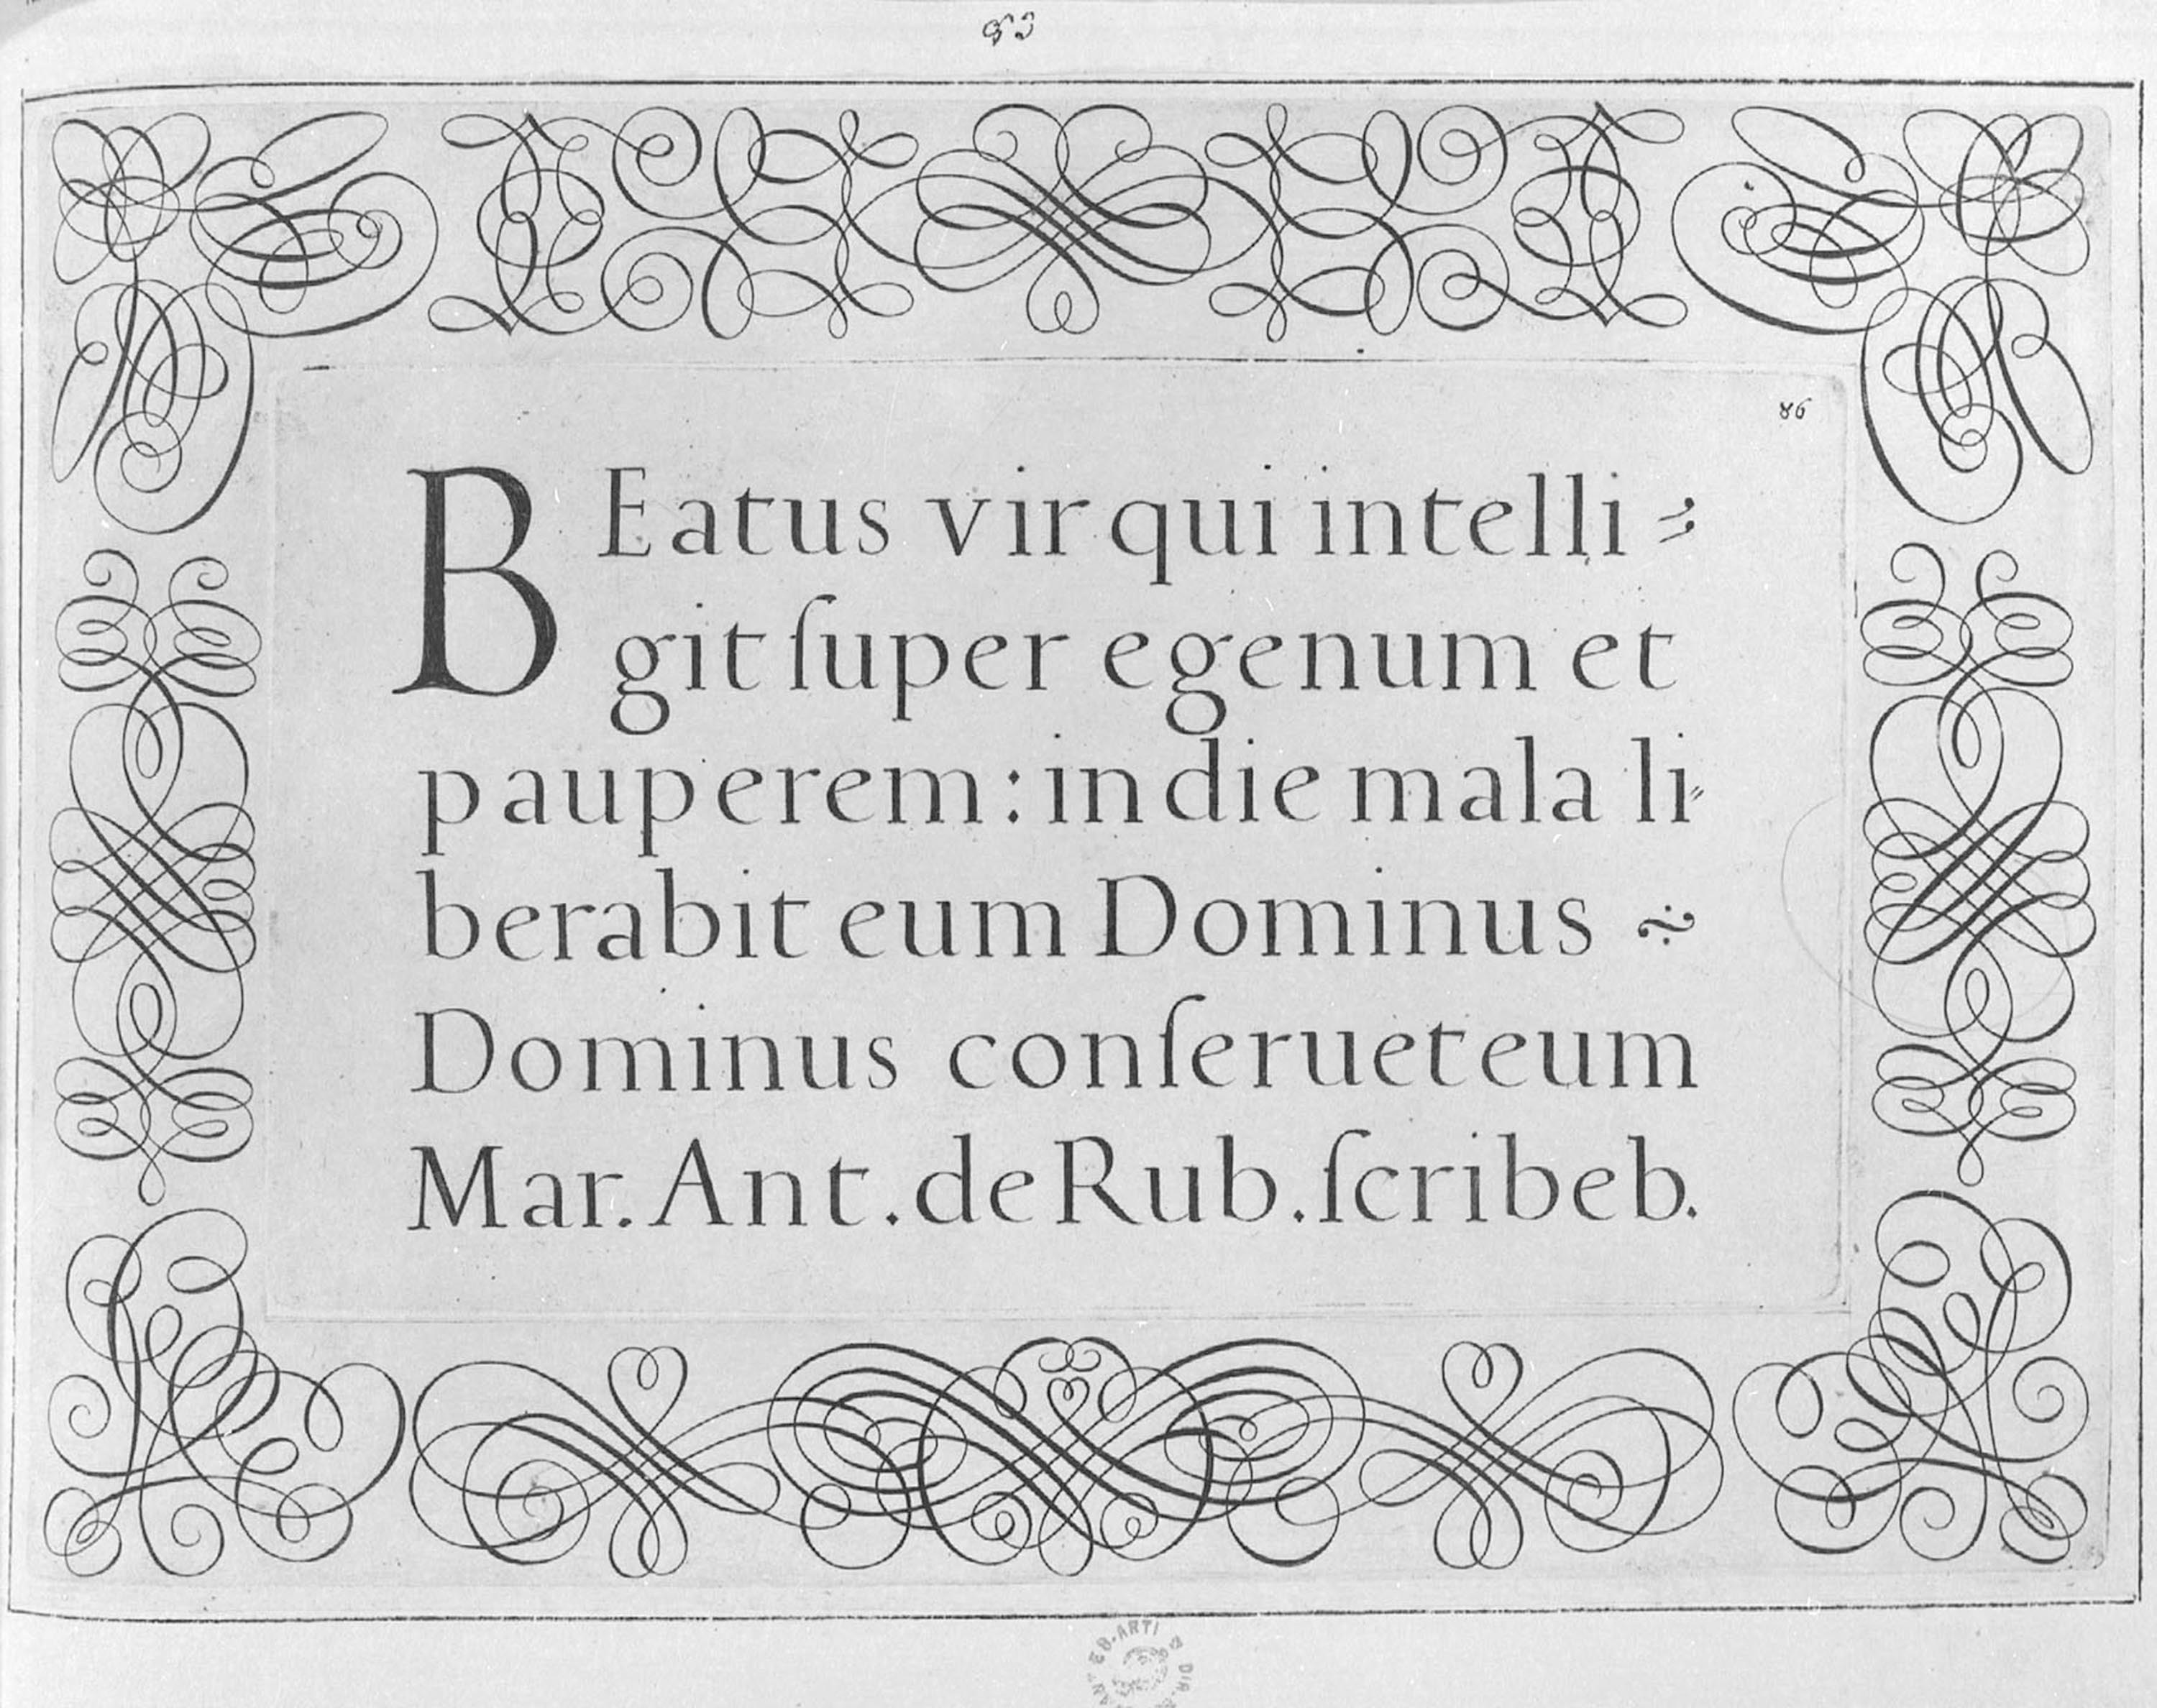 83
86
BEatus vir qui intelli⸗
git ſuper egenum et
pauperem: in die mala li⸗
berabit eum Dominus
Dominus conſeruet eum
Mar. Ant. de Rub. ſcribeb.